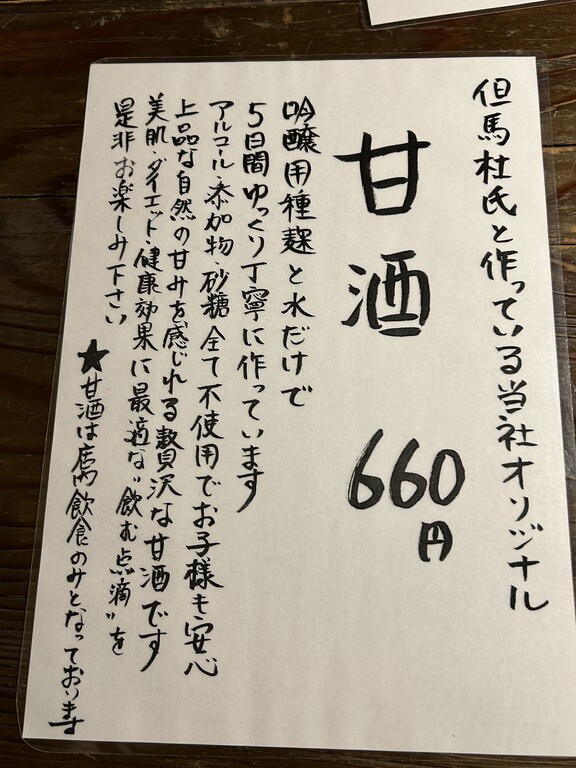 但馬杜氏と作っている当社オリジナル
甘酒 660円
吟醸用種麹と水だけで
5日間ゆっくり丁寧に作っています
アルコール・添加物・砂糖 全て不使用でお子様も安心
上品な自然の甘みを感じれる贅沢な甘酒です
美肌・ダイエット・健康効果に最適な"飲む点滴"を
是非お楽しみ下さい
★甘酒は店内飲食のみとなっております